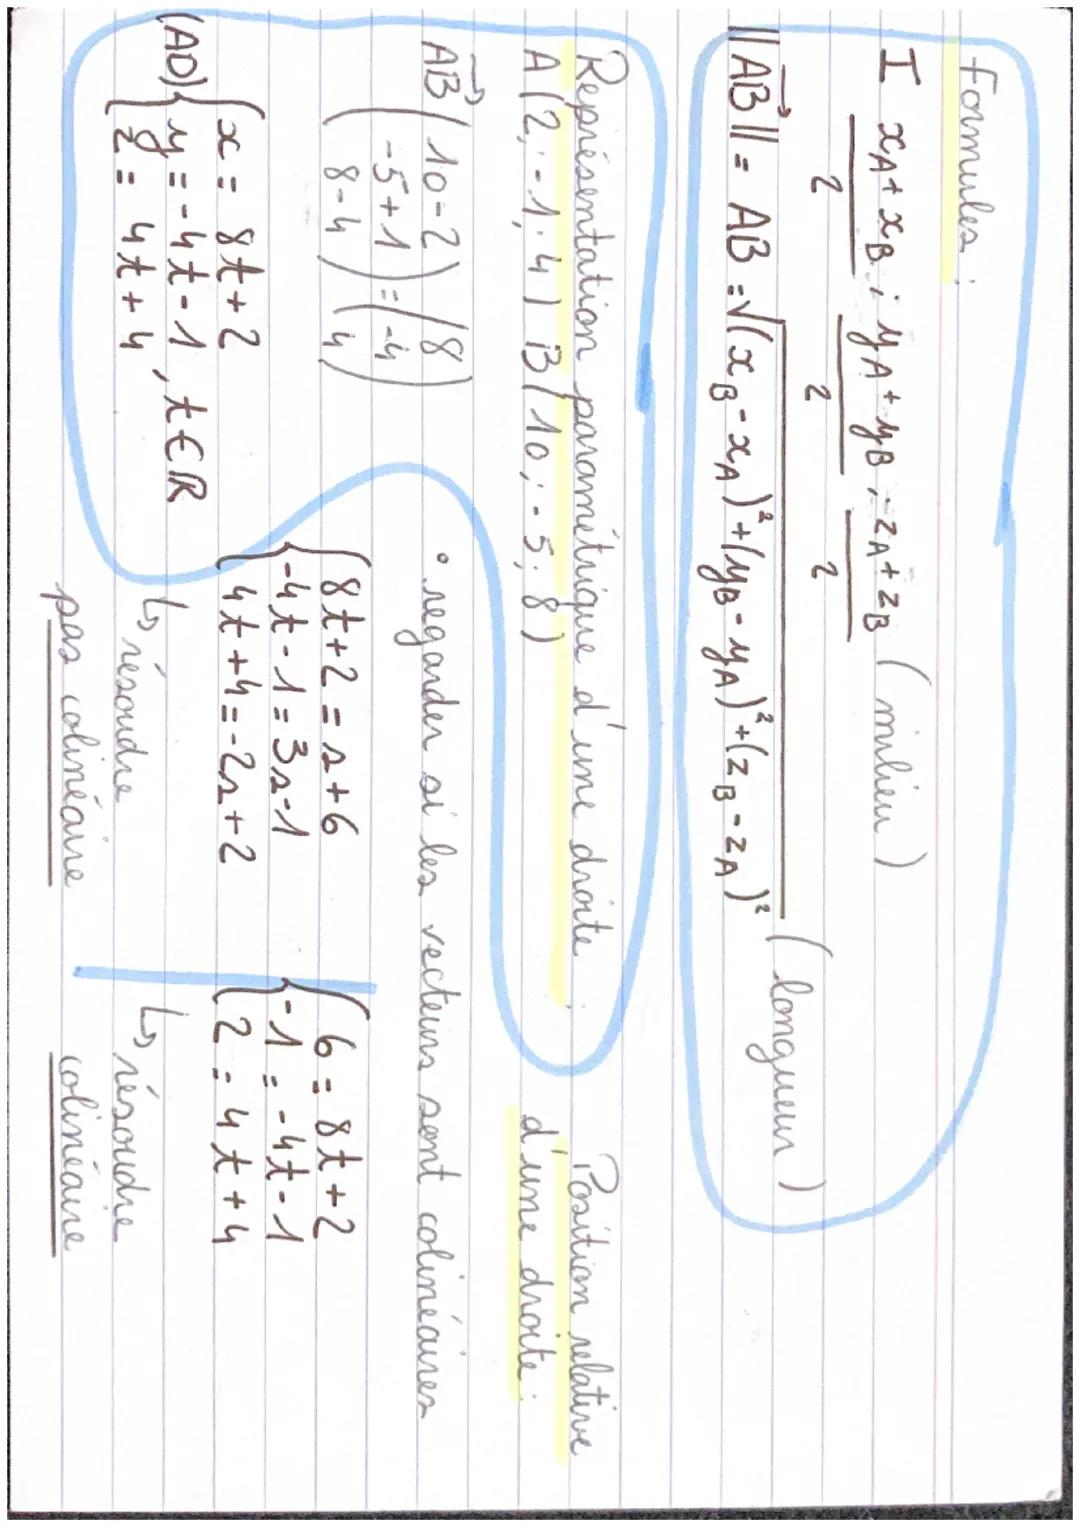 Formules :
I xA + xB / 2 ; yA + yB / 2 ; zA + zB / 2 (milieu)
||AB→|| = AB = √(xB - xA)² + (yB - yA)² + (zB - zA)² (longueur)
Représentation paramétrique d'une droite :
A (2 ; -1 ; 4) B (10 ; -5 ; 8)
AB→ (10-2
-5+1
8-4) = (8
-4
4)
(AD) { x = 8t + 2
y = -4t - 1 , t ∈ ℝ
z = 4t + 4
Position relative
d'une droite :
• regarder si les vecteurs sont colinéaires
{ 8t + 2 = s + 6
-4t - 1 = 3s - 1
4t + 4 = -2s + 2
↳ résoudre
pas colinéaire
{ 6 = 8t + 2
-1 = -4t - 1
2 = 4t + 4
↳ résoudre
colinéaire